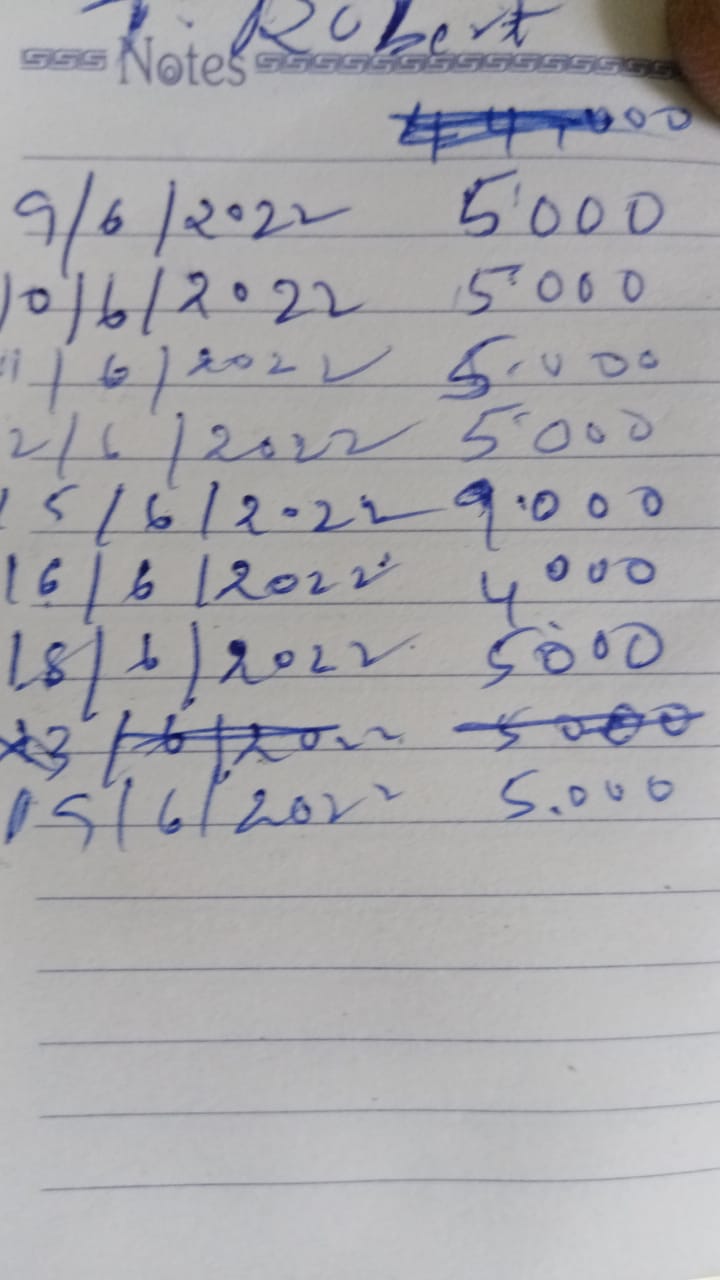 T. Robert
Notes
44,000
9/6/2022 5'000
10/6/2022 5'000
11/6/2022 5.000
2/6/2022 5'000
15/6/2022 9.000
16/6/2022 4000
18/6/2022 5000
23/6/2022 5000
19/6/2022 5.000